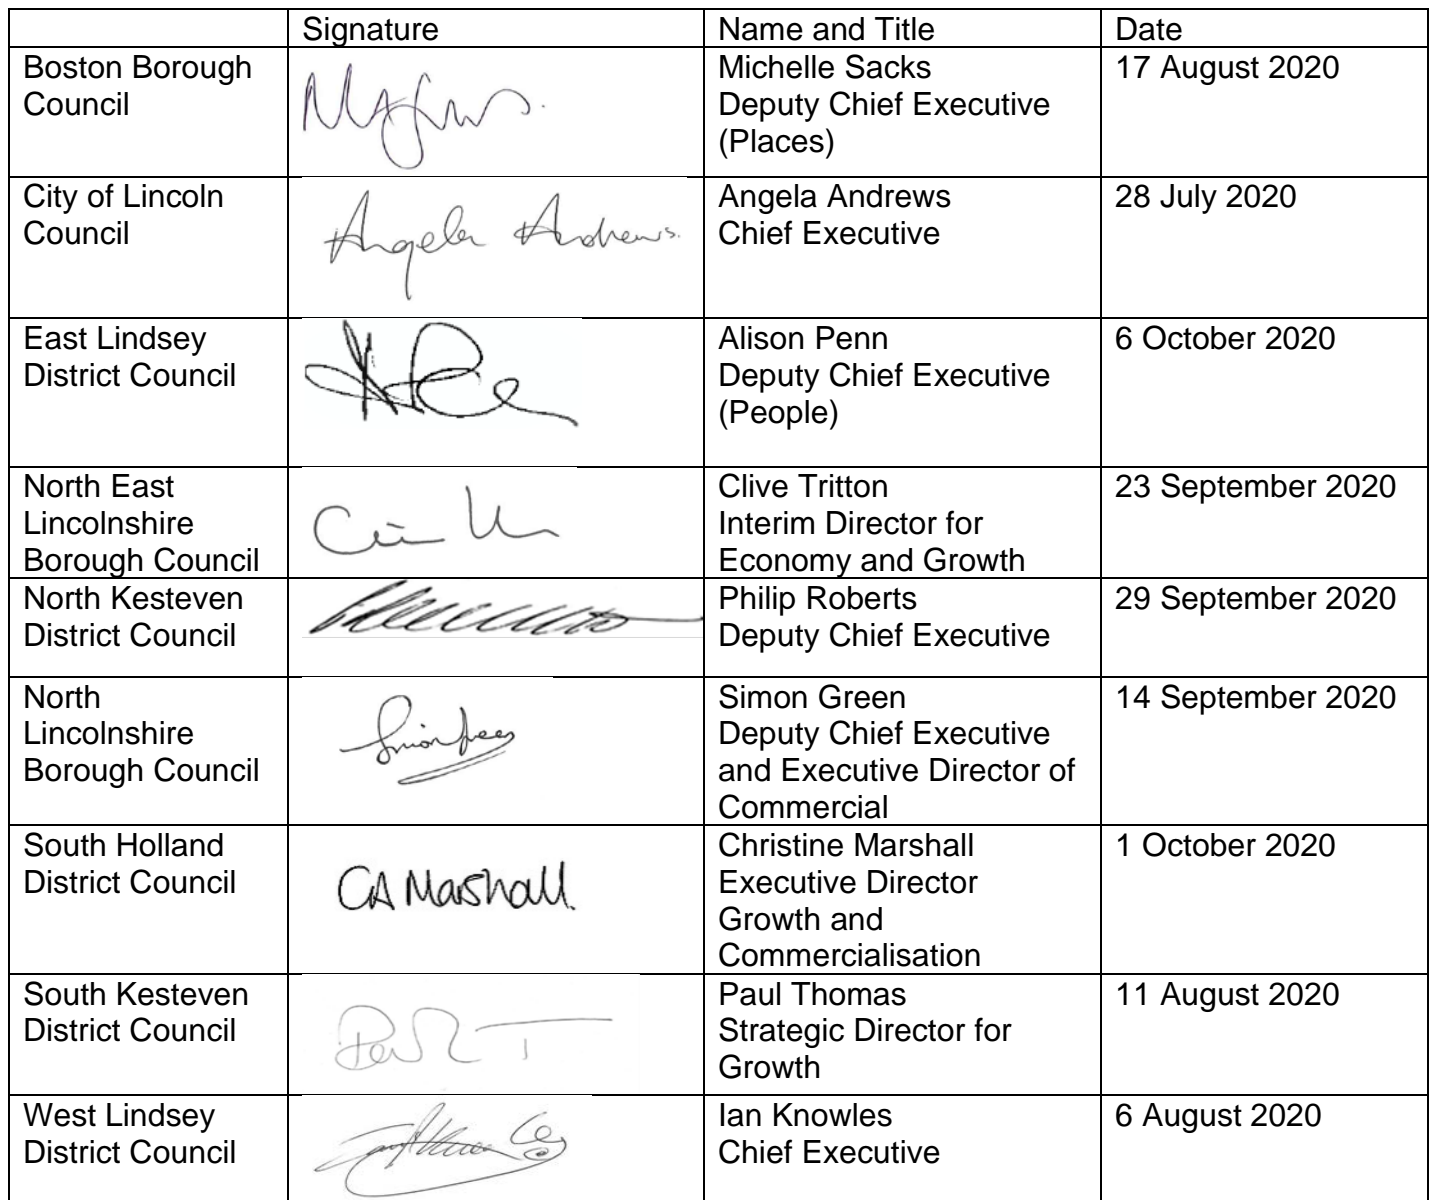 Signature Name and Title Date
Boston Borough Council
Michelle Sacks
Deputy Chief Executive
(Places)
17 August 2020
City of Lincoln
Council
Angela Andrews.
Angela Andrews
Chief Executive
28 July 2020
East Lindsey
District Council
Alison Penn
Deputy Chief Executive
(People)
6 October 2020
North East
Lincolnshire
Borough Council
Clive Tritton
Interim Director for
Economy and Growth
23 September 2020
North Kesteven
District Council
Philip Roberts
Deputy Chief Executive
29 September 2020
North
Lincolnshire
Borough Council
Simon Green
Deputy Chief Executive
and Executive Director of
Commercial
14 September 2020
South Holland
District Council
CA Marshall
Christine Marshall
Executive Director
Growth and
Commercialisation
1 October 2020
South Kesteven
District Council
Paul Thomas
Strategic Director for
Growth
11 August 2020
West Lindsey
District Council
Ian Knowles
Chief Executive
6 August 2020